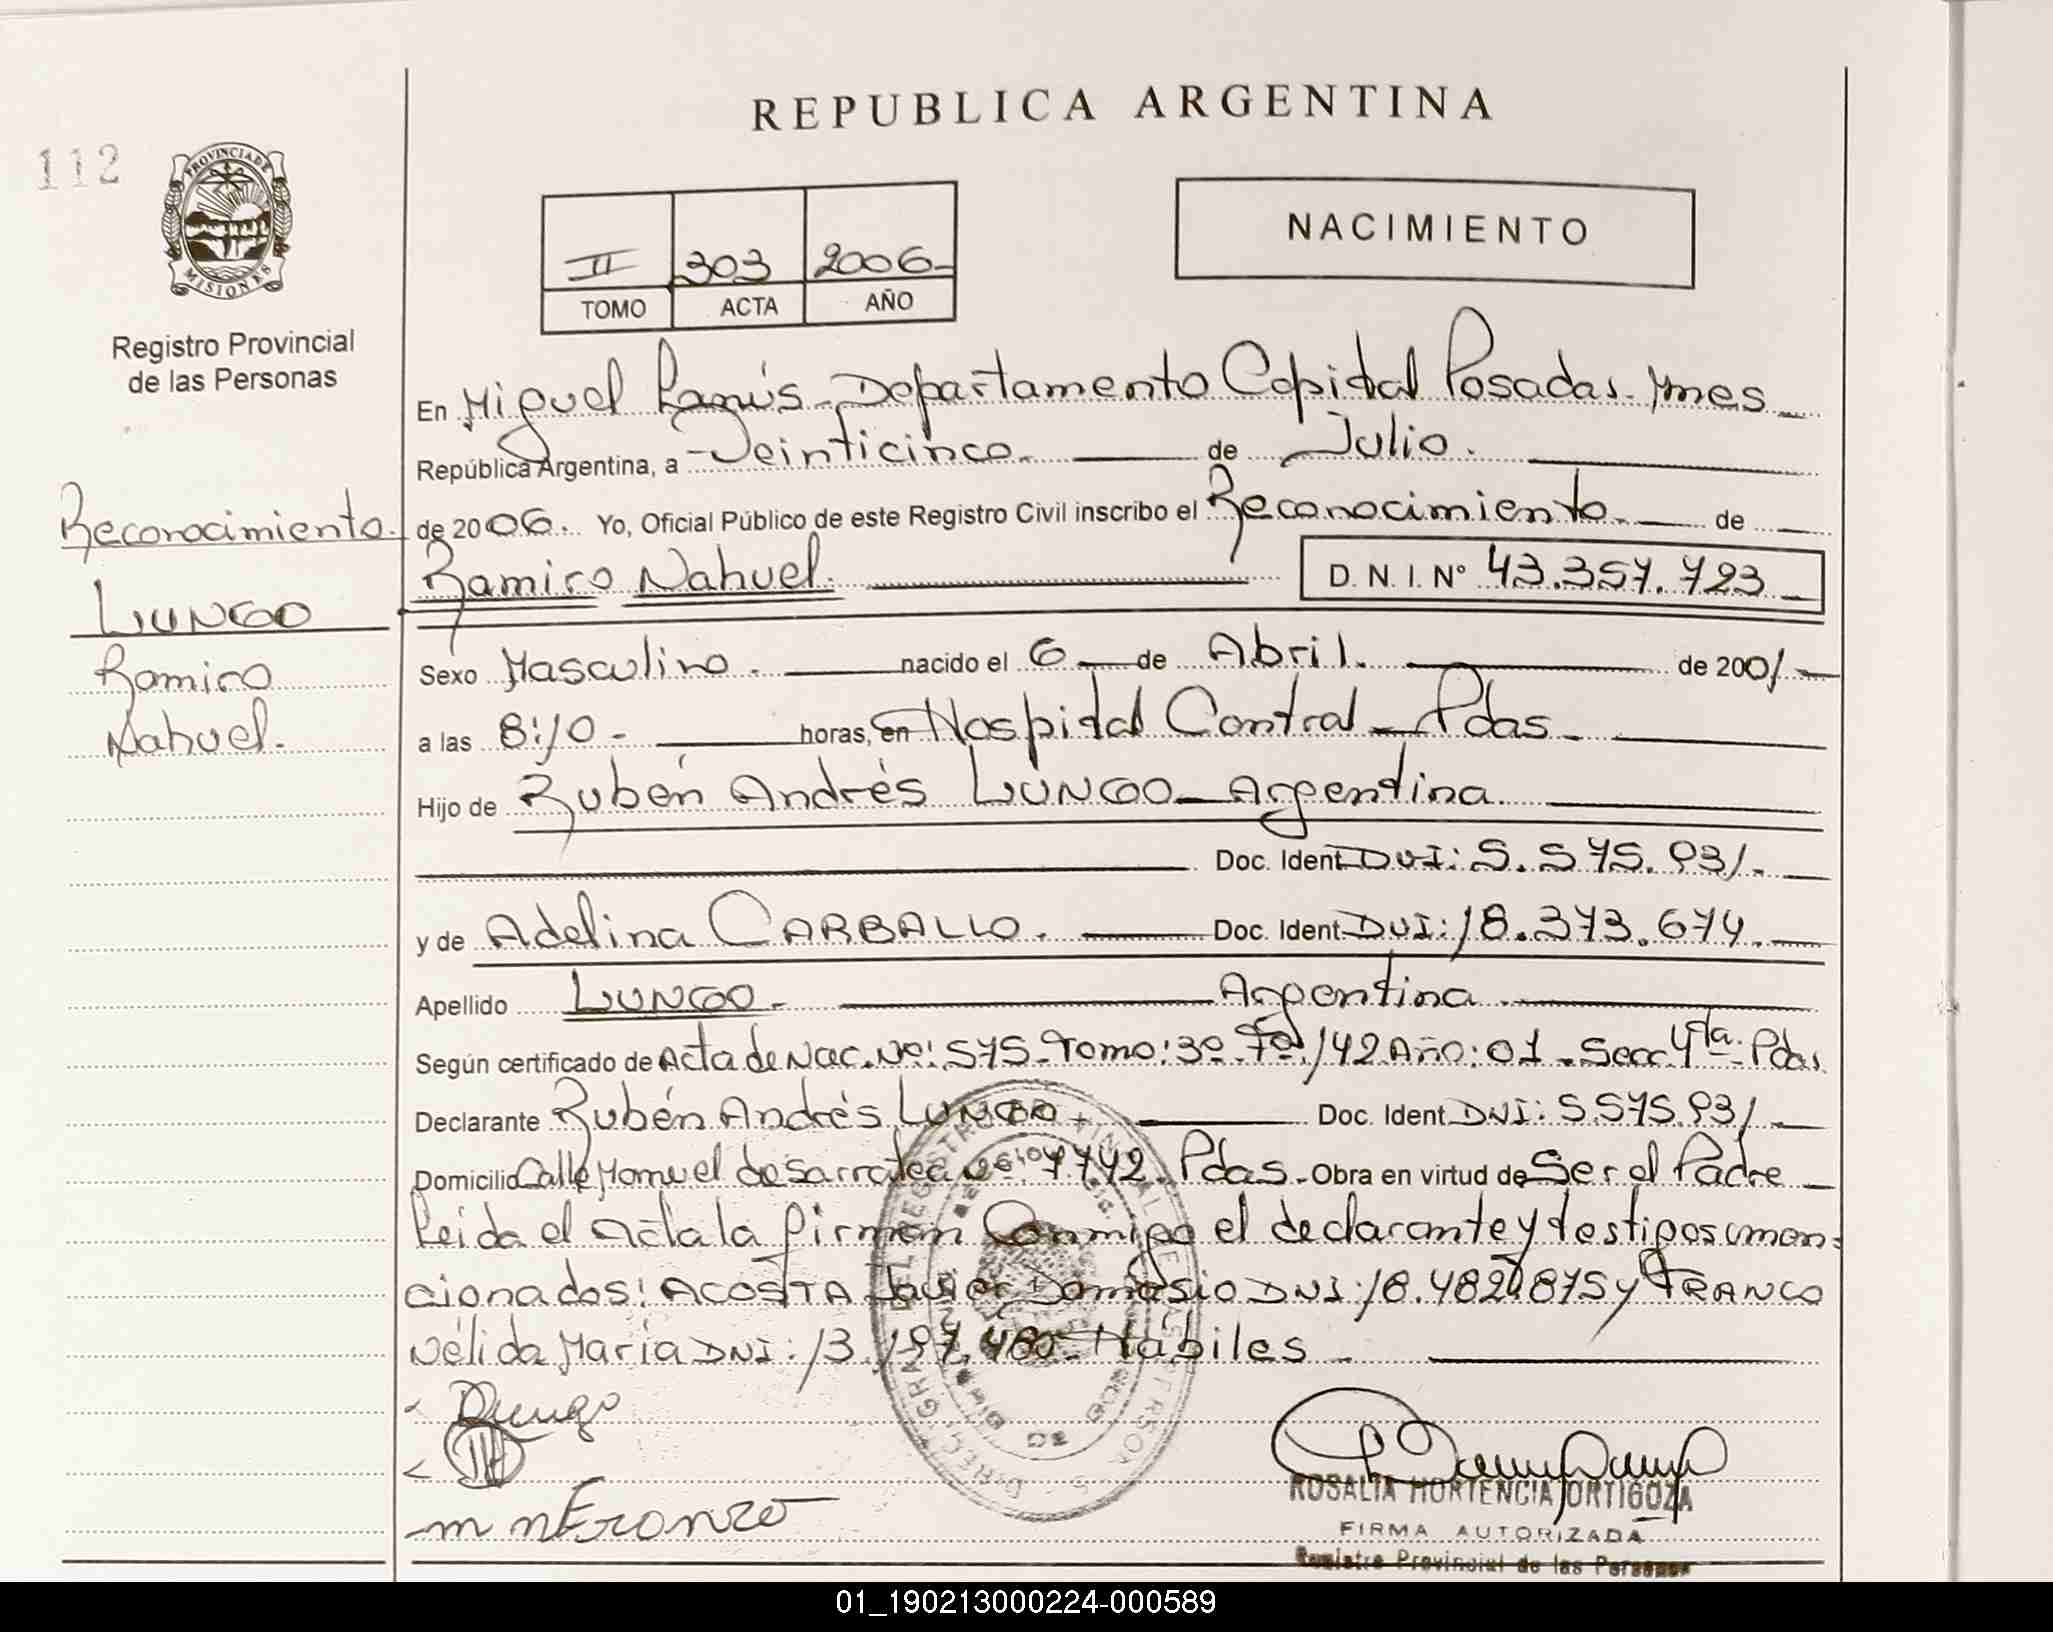 REPUBLICA ARGENTINA
112
PROVINCIA DE MISIONES
Registro Provincial
de las Personas
II 303 2006-
TOMO ACTA AÑO
NACIMIENTO
En Miguel Lanús - Departamento Capital Posadas - Mnes
República Argentina, a Veinticinco. de Julio.
de 2006. Yo, Oficial Público de este Registro Civil inscribo el Reconocimiento. de
Ramiro Nahuel. D. N. I. Nº 43.357.723
Reconocimiento.
LUNGO
Ramiro
Nahuel.
Sexo Masculino. nacido el 6 de Abril. de 2001
a las 8:10 - horas, en Hospital Central - Pdas.
Hijo de Rubén Andrés LUNGO - Argentina
Doc. Ident DNI: 5.575.931.
y de Adelina CARBALLO. Doc. Ident DNI: 18.373.674.
Apellido LUNGO. Argentina
Según certificado de Acta de Nac. Nº: 575 - Tomo: 3º - Fº 142 Año: 01 - Secc 4ta. Pdas.
Declarante Rubén Andrés LUNGO Doc. Ident DNI: 5.575.931
Domicilio Calle Manuel de Sarratea Nº 7742. Pdas. Obra en virtud de Ser el Padre
Leida el Acta la firman Conmigo el declarante y testigos men-
cionados: ACOSTA Javier Damasio DNI: 18.482.875 y FRANCO
Nélida María DNI: 13.197.480 - Hábiles
Lungo
ROSALIA HORTENCIA ORTIGOZA
FIRMA AUTORIZADA
Registro Provincial de las Personas
01_190213000224-000589